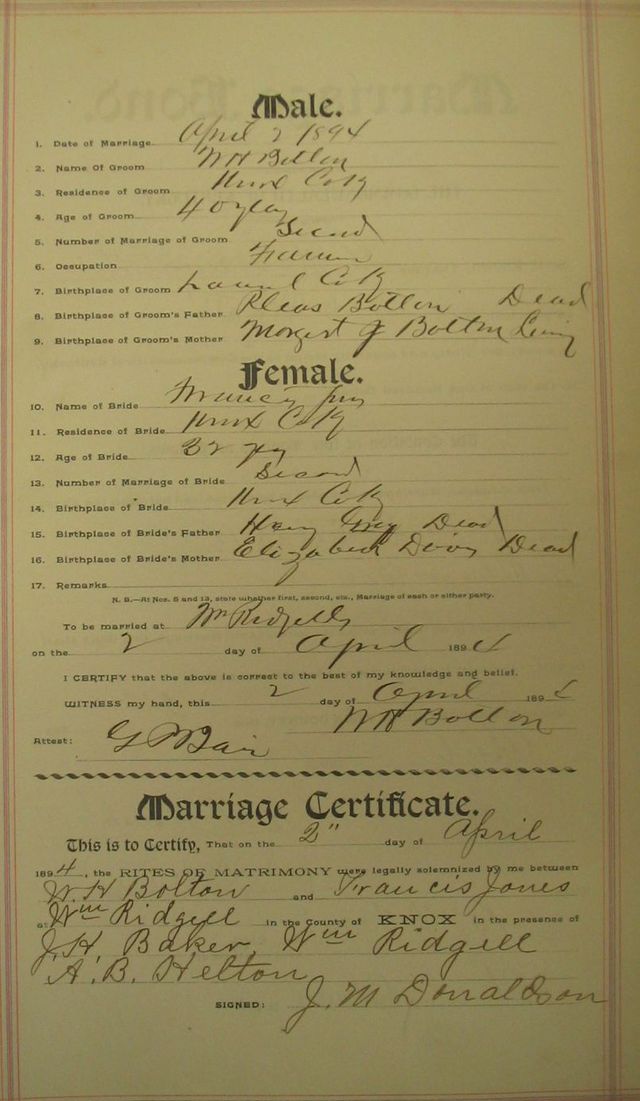 Male.
1. Date of Marriage April 2 1894
2. Name Of Groom W H Bolton
3. Residence of Groom Knox Co Ky
4. Age of Groom 40 y
5. Number of Marriage of Groom Second
6. Occupation Farmer
7. Birthplace of Groom Laurel Co Ky
8. Birthplace of Groom's Father Pleas Bolton Dead
9. Birthplace of Groom's Mother J Bolton Living
Female.
10. Name of Bride
11. Residence of Bride Knox Co Ky
12. Age of Bride 32 y
13. Number of Marriage of Bride Second
14. Birthplace of Bride Knox Co Ky
15. Birthplace of Bride's Father Dead
16. Birthplace of Bride's Mother Elizabeth Dead
17. Remarks
N. B.—At Nos. 5 and 13, state whether first, second, etc., Marriage of each or either party.
To be married at Wm Ridgells
on the 2 day of April 1894
I CERTIFY that the above is correct to the best of my knowledge and belief.
WITNESS my hand, this 2 day of April 1894
W H Bolton
Attest:
Marriage Certificate.
This is to Certify, That on the 2" day of April
1894, the RITES OF MATRIMONY were legally solemnized by me between
W. H Bolton and Francis Jones
at Wm Ridgell in the County of KNOX in the presence of
J. H. Baker, Wm Ridgell
A. B. Helton
SIGNED: J. M Donaldson